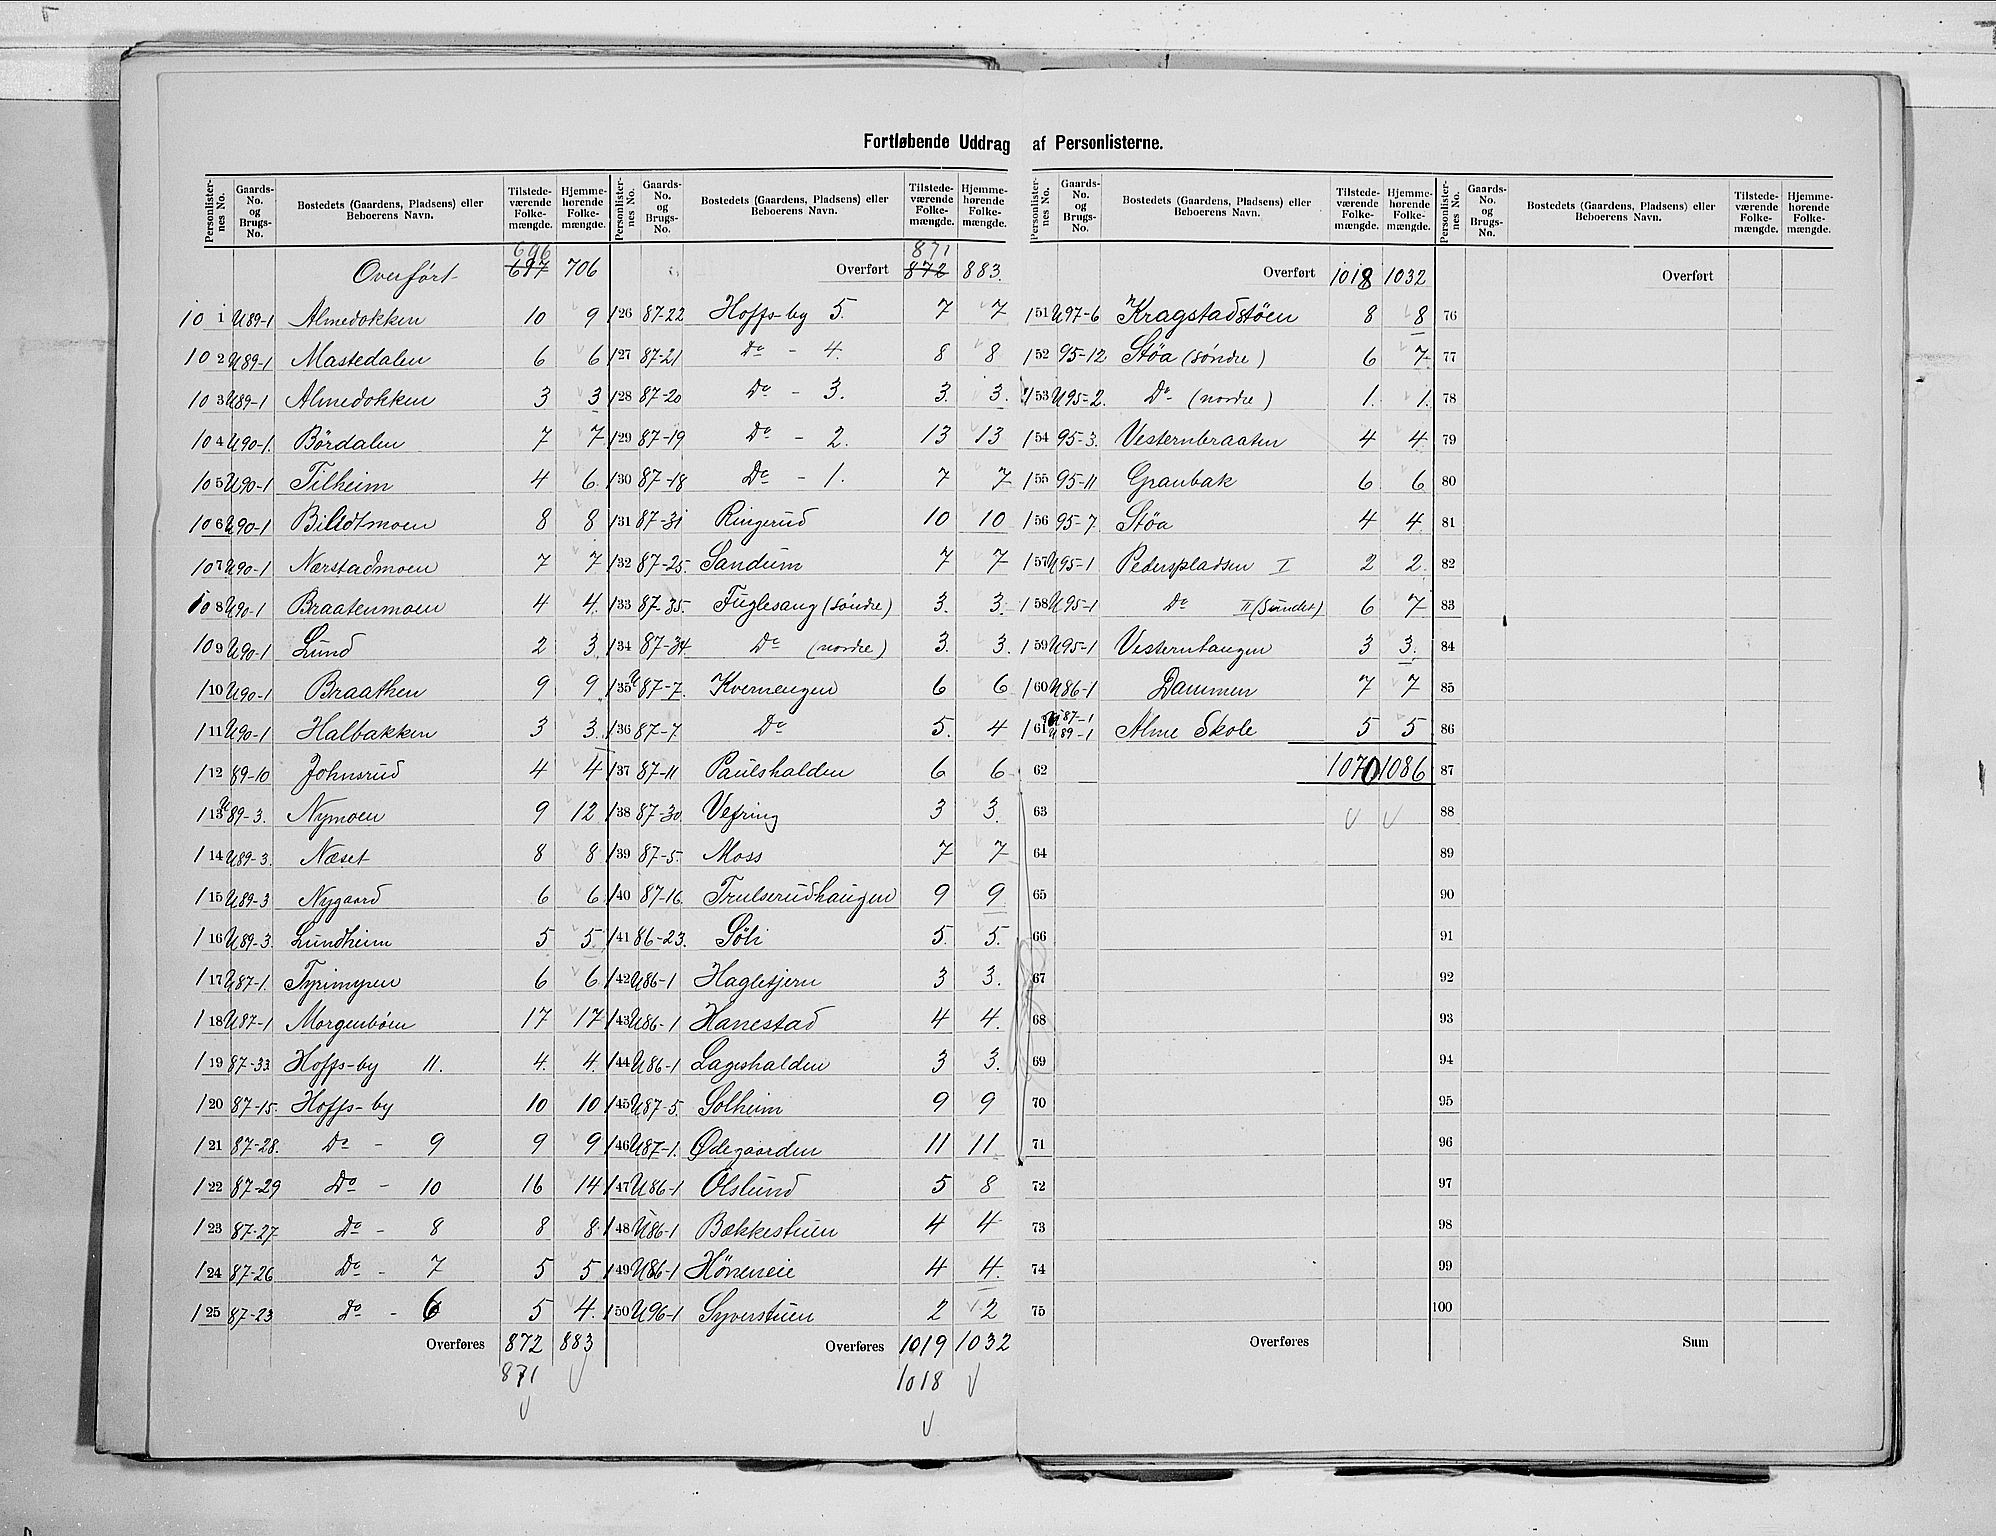 Fortløbende Uddrag af Personlisterne.
Personlister-nes No. | Gaards-No. og Brugs-No. | Bostedets (Gaardens, Pladsens) eller Beboerens Navn. | Tilstede-værende Folke-mængde. | Hjemme-hørende Folke-mængde.
Overført 696 697 706
101 U89-1 Almedokken 10 9
102 U89-1 Mastedalen 6 6
103 U89-1 Almedokken 3 3
104 U90-1. Børdalen 7 7
105 U90-1 Tilheim 4 6
106 U90-1 Bilidtmoen 8 8
107 U90-1 Nærstadmoen 7 7
108 U90-1 Braatenmoen 4 4.
109 U90-1 Lund 2 3
110 U90-1 Braathen 9 9
111 U90-1 Halbakken 3 3
112 89-10 Johnsrud 4 4
113 U89-3. Nymoen 9 12
114 U89-3. Næset 8 8
115 U89-3 Nygaard 6 6
116 U89-3. Lundheim 5 5.
117 U87-1. Tyrimyren 6 6
118 U87-1 Morgenbøen 17 17
119 87-33 Hoffs-by 11. 4. 4.
120 87-15. Hoffs-by 10 10
121 87-28. Do - 9 9 9
122 87-29 Do - 10 16 14
123 87-27 Do - 8 8 8
124 87-26 Do - 7 5 5
125 87-23 Do - 6 5 4.
Overføres 872 883
871
Personlister-nes No. | Gaards-No. og Brugs-No. | Bostedets (Gaardens, Pladsens) eller Beboerens Navn. | Tilstede-værende Folke-mængde. | Hjemme-hørende Folke-mængde.
Overført 871 872 883.
126 87-22 Hoffs-by 5. 7 7
127 87-21 Do - 4. 8 8
128 87-20 Do - 3. 3. 3.
129 87-19 Do - 2. 13 13
130 87-18 Do - 1. 7 7
131 87-31 Ringerud 10 10
132 87-25. Sandum 7 7
133 87-35. Fuglesang (søndre) 3. 3.
134 87-34 Do (nordre) 3. 3.
135 U87-7. Kvernengen 6 6
136 87-7 Do 5. 4
137 87-11 Paulshalden 6 6
138 87-30 Vefring 3 3.
139 87-5. Moss 7 7
140 87-16. Trulserudhaugen 9 9
141 86-23. Søli 5. 5.
142 U86-1 Haglesjern 3 3.
143 U86-1 Hanestad 4 4.
144 U86-1 Lageshalden 3 3.
145 U87-5. Solheim 9 9
146 U87-1. Ødegaarden 11 11
147 U86-1 Olslund 5 8
148 U86-1 Bækkestuen 4 4
149 U86-1 Høneneie 4 4.
150 U96-1 Syverstuen 2 2
Overføres 1019 1032
1018
Personlister-nes No. | Gaards-No. og Brugs-No. | Bostedets (Gaardens, Pladsens) eller Beboerens Navn. | Tilstede-værende Folke-mængde. | Hjemme-hørende Folke-mængde.
Overført 1018 1032
151 U97-6 Kragstadstøen 8 8
152 95-12 Støa (søndre) 6 7
153 U95-2. Do (nordre) 1. 1.
154 95-3. Vesternbraaten 4 4
155 95-11 Granbak 6 6
156 95-7. Støa 4 4
157 U95-1 Pederspladsen I 2 2
158 U95-1 Do II (Sundet) 6 7
159 U95-1 Vesterntangen 3 3.
160 U86-1 Dammen 7 7
161 U87-1 U89-1 Alme Skole 5 5
62 1070 1086
63
64
65
66
67
68
69
70
71
72
73
74
75
Overføres
Personlister-nes No. | Gaards-No. og Brugs-No. | Bostedets (Gaardens, Pladsens) eller Beboerens Navn. | Tilstede-værende Folke-mængde. | Hjemme-hørende Folke-mængde.
Overført
76
77
78
79
80
81
82
83
84
85
86
87
88
89
90
91
92
93
94
95
96
97
98
99
100
Sum